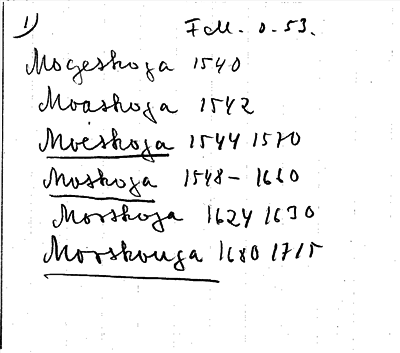 1) F.M. s. 53.
Mogeskoga 1540
Moaskoga 1542
Moéskoga 1544 1570
Moskoga 1548 - 1660
Morskoga 1624 1630
Morskouga 1680 1715